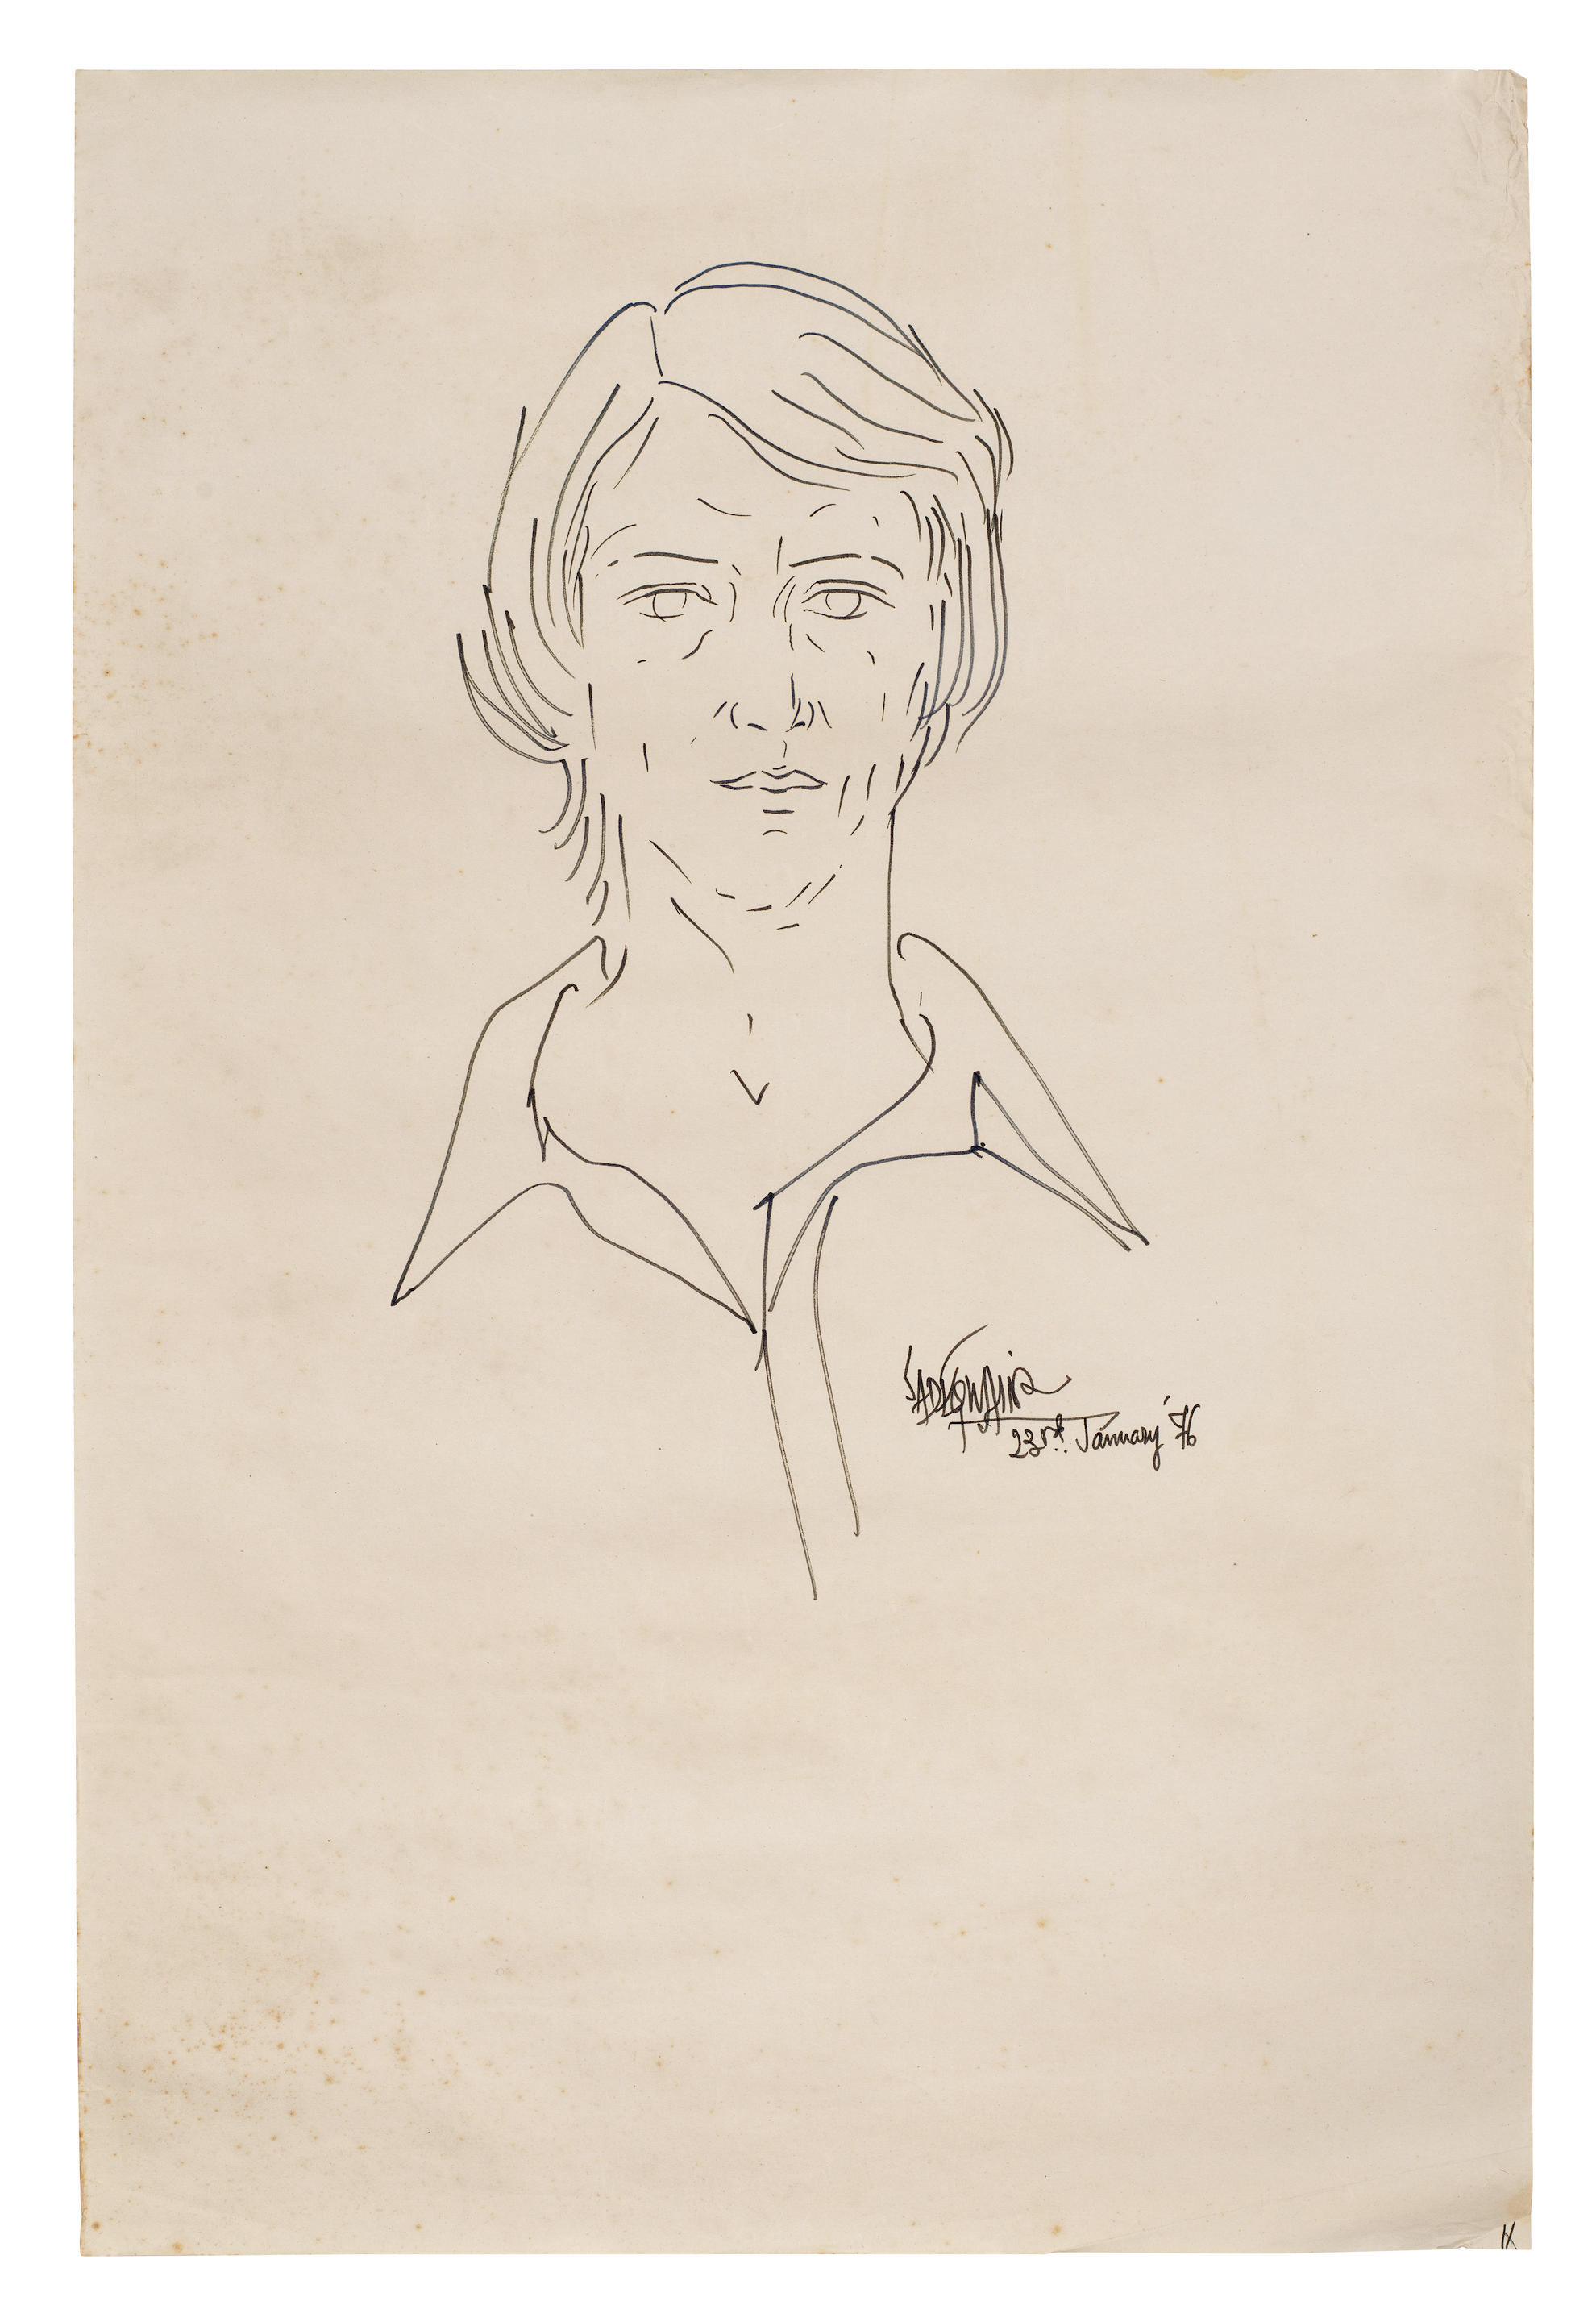 SADEQUAIN
23rd. January '76
IX